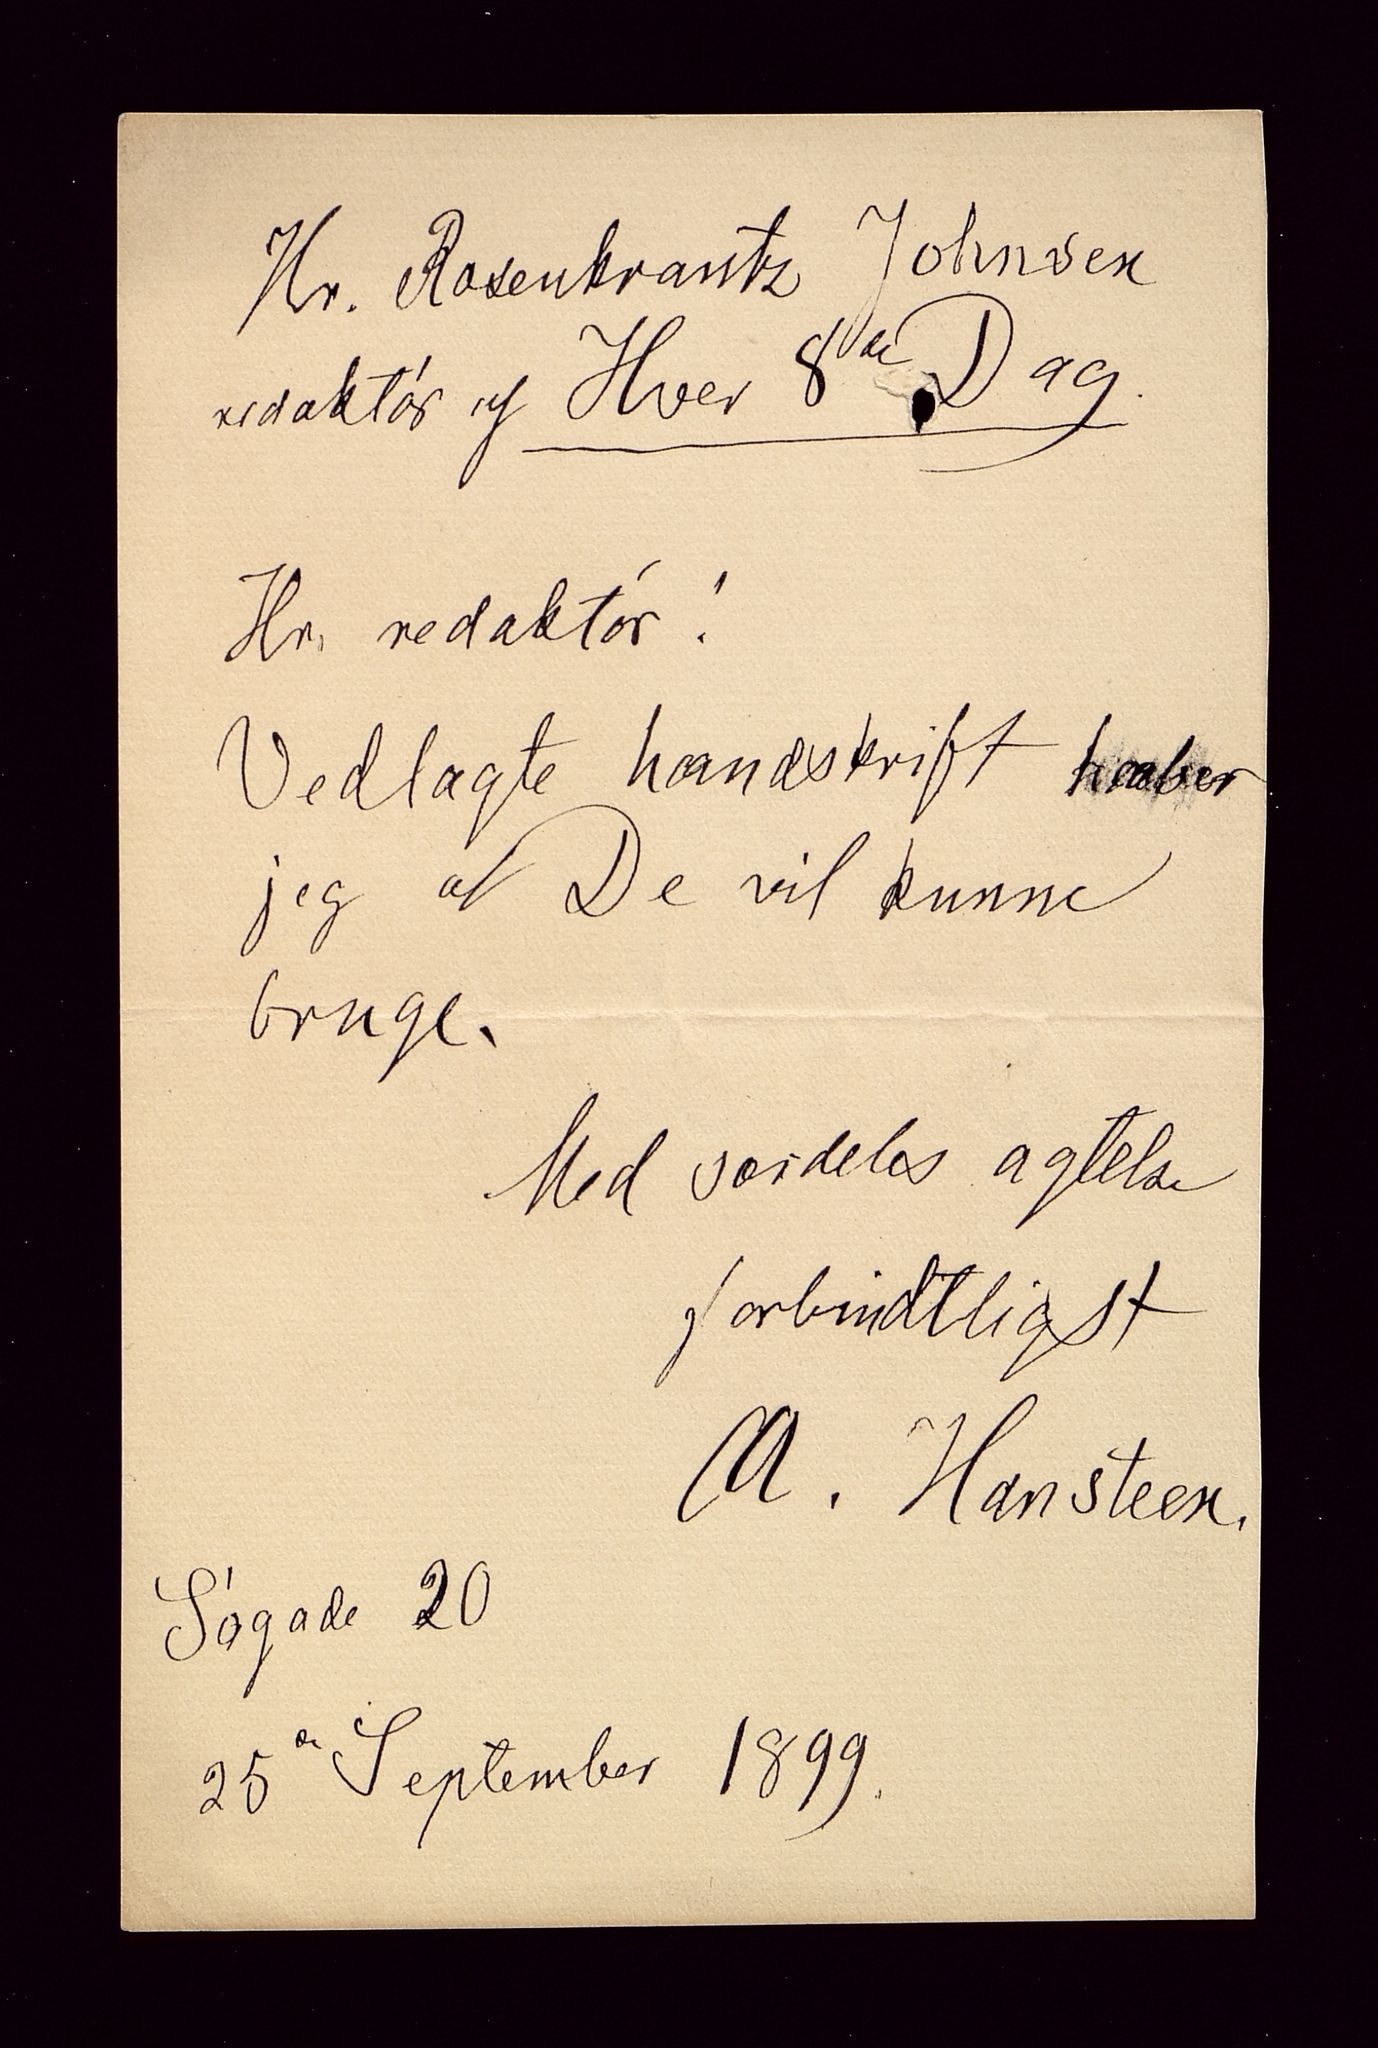 Hr. Rosenkrantz Johnsen
redaktór af Hver 8de Dag.
Hr. redaktór!
Vedlagte haandskrift haaber
jeg at De vil kunne
bruge.
Med særdeles agtelse
forbindtligst
A. Hansteen.
Ságade 20
25de September 1899.